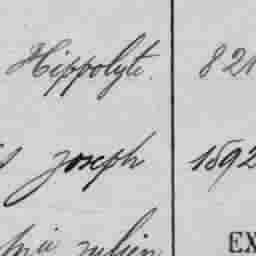 Hippolyte. 821
Joseph 1592
Julien EX